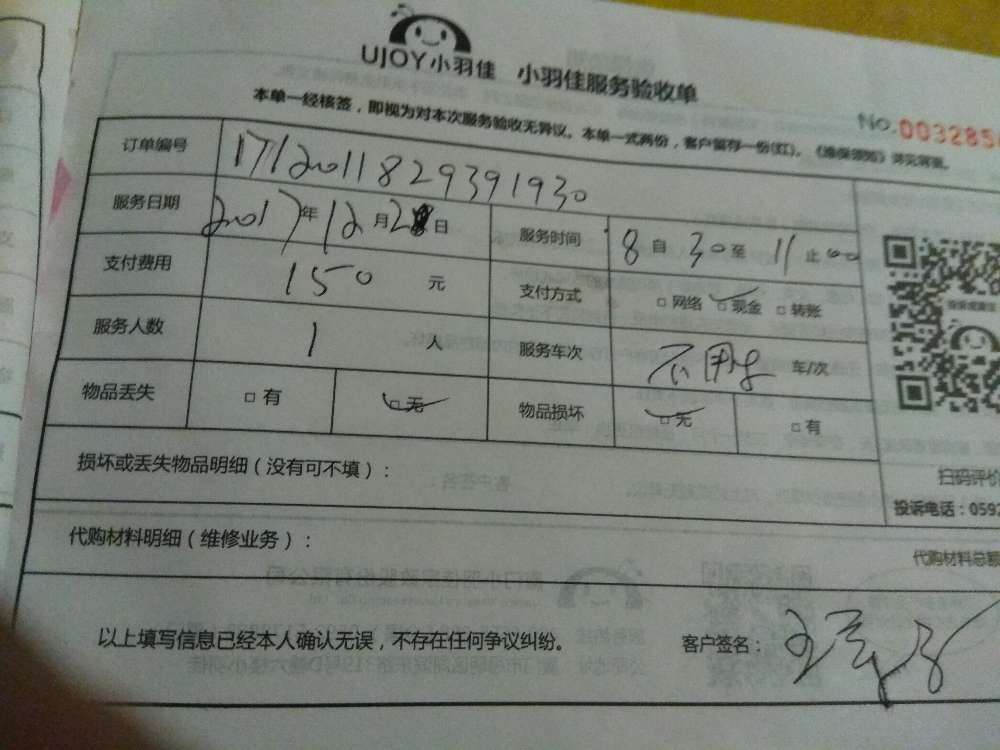 UJOY小羽佳 小羽佳服务验收单
本单一经核签，即视为对本次服务验收无异议。本单一式两份，客户留存一份(红)。
No. 003285
订单编号 171201182939 1930
服务日期 2017年12月2日 服务时间 8自30至11止00
支付费用 150元 支付方式 □网络 □现金 □转账
服务人数 1人 服务车次 不用 车/次
物品丢失 □有 □无 物品损坏 □无 □有
损坏或丢失物品明细（没有可不填）：
扫码评价
投诉电话：0592
代购材料明细（维修业务）：
代购材料总额
以上填写信息已经本人确认无误，不存在任何争议纠纷。 客户签名：